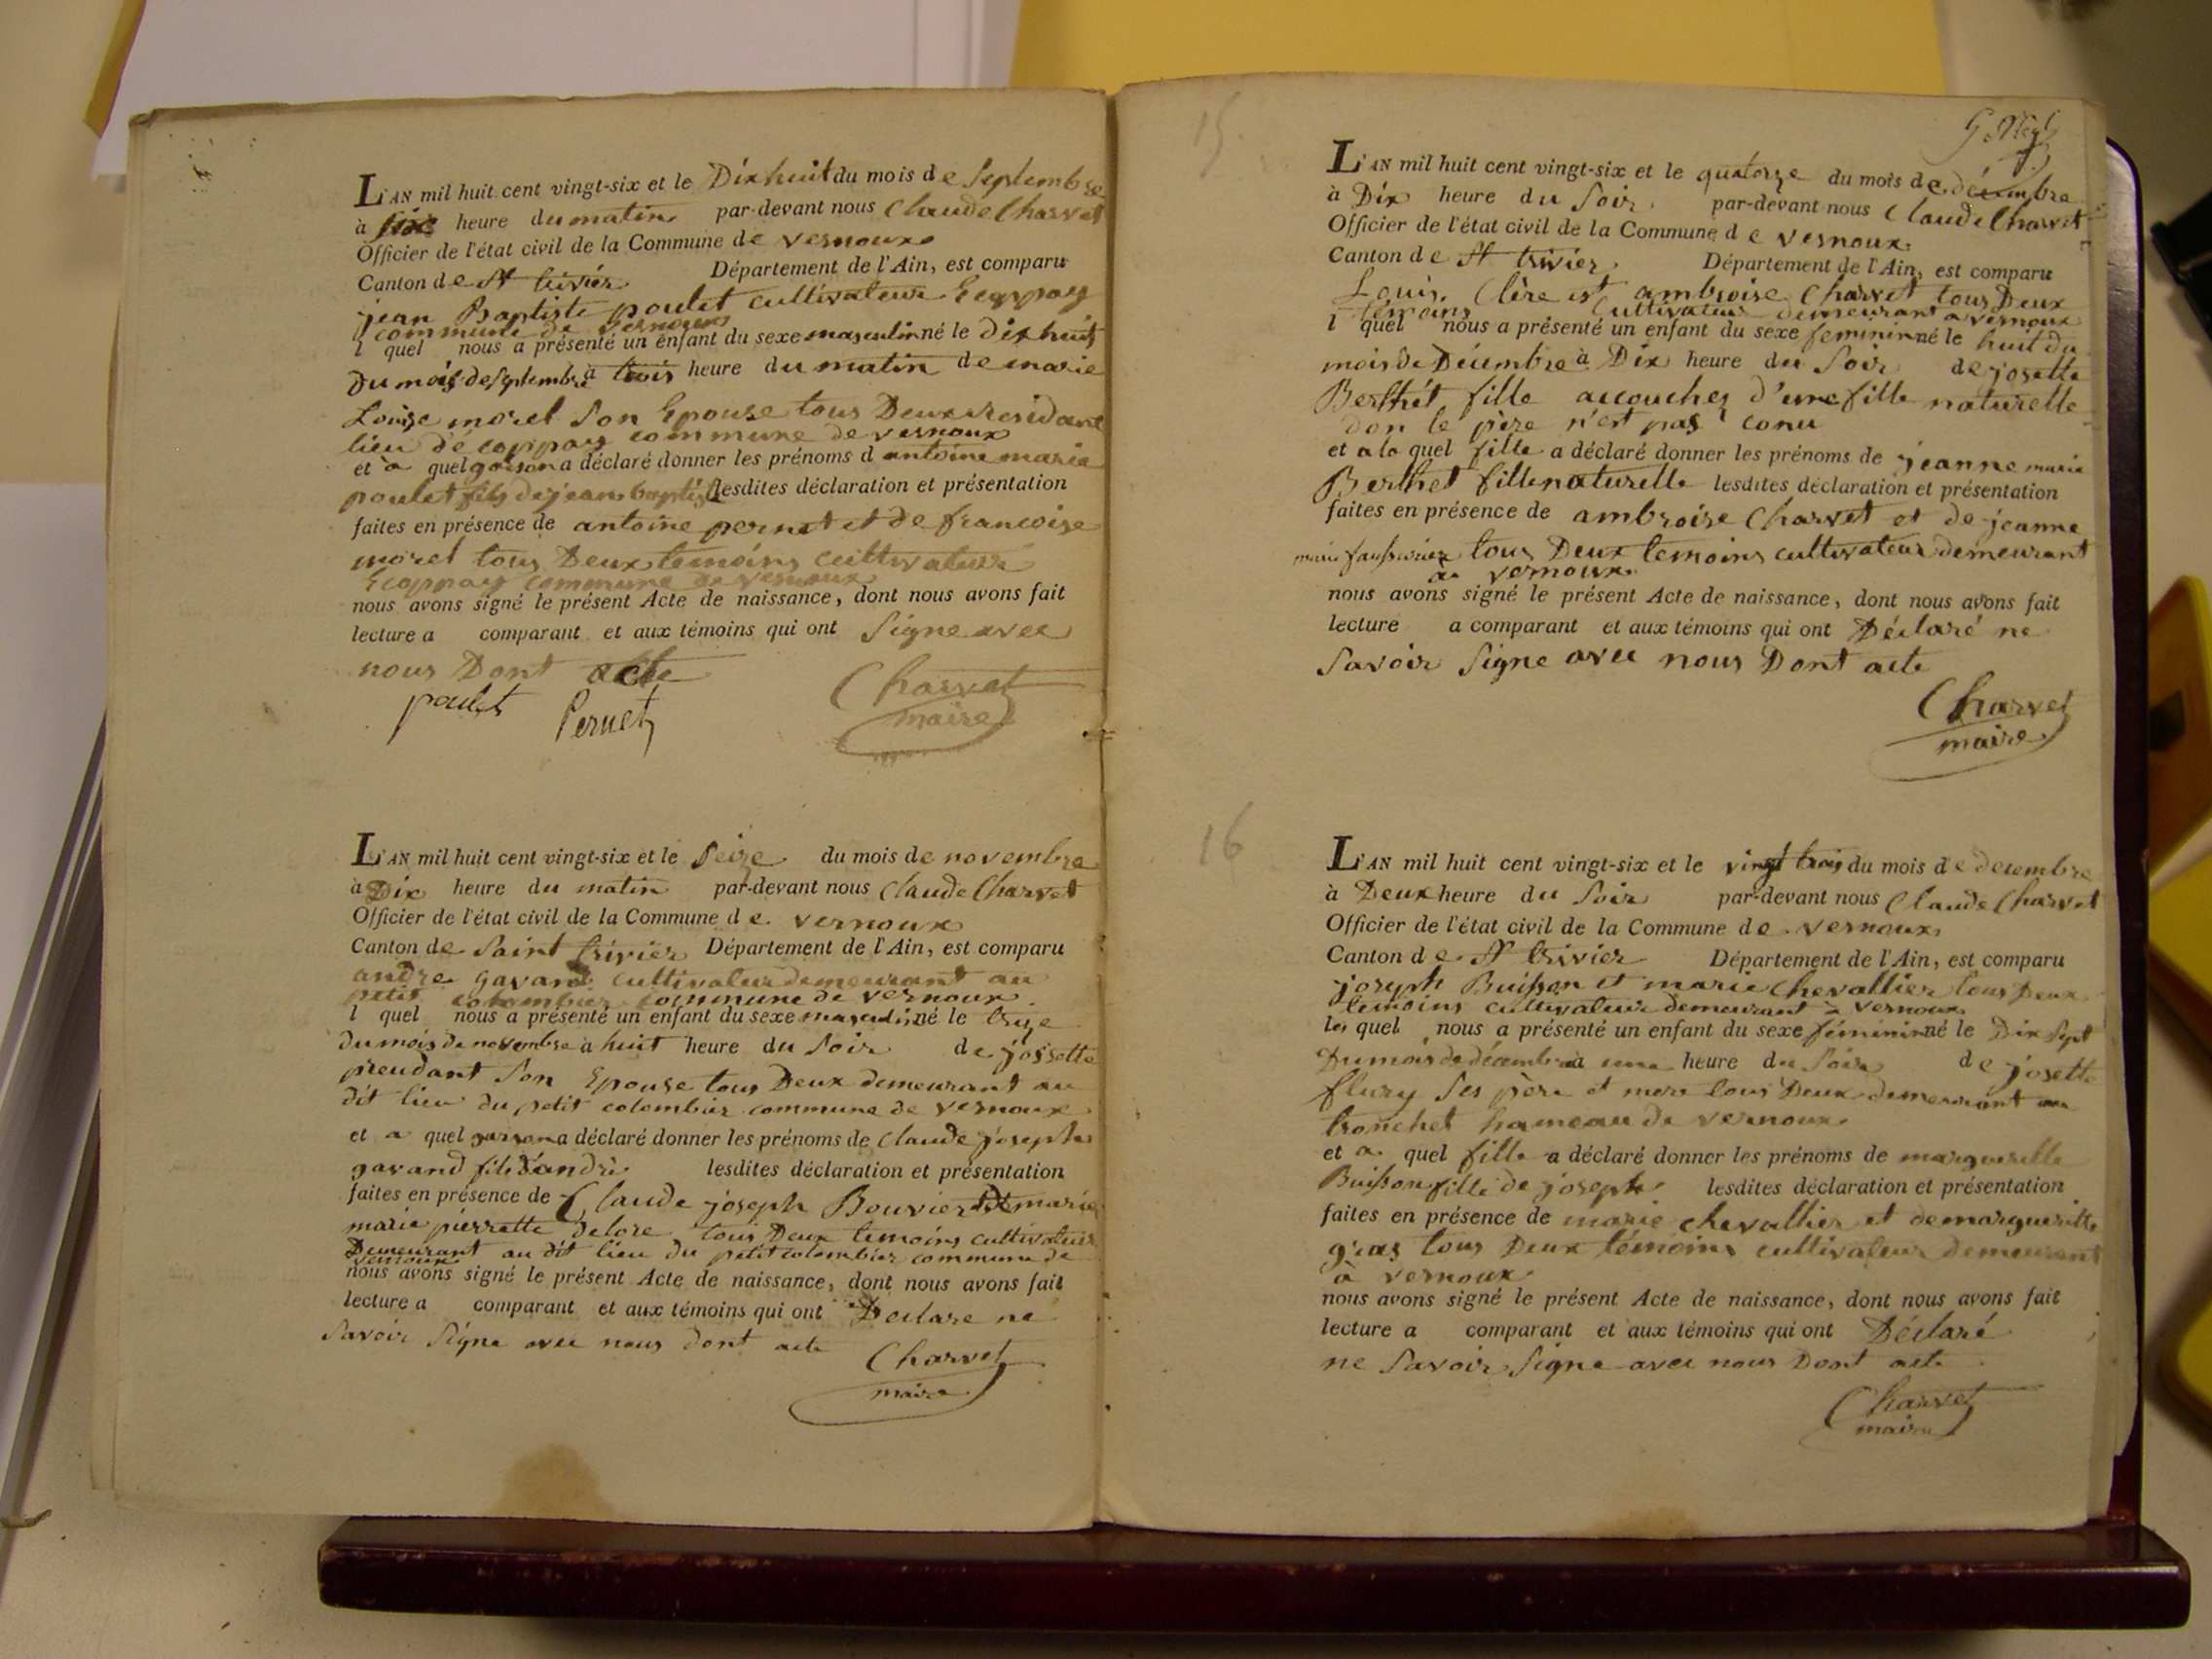 L'AN mil huit cent vingt-six et le Dix huit du mois de Septembre
à six heure du matin par-devant nous Claude Charvet
Officier de l'état civil de la Commune de vernoux
Canton de St trivier Département de l'Ain, est comparu
jean Baptiste poulet cultivateur
commune de vernoux
l quel nous a présenté un enfant du sexe masculin né le dix huit
Du mois de septembre à trois heure du matin de marie
Louise morel son Epouse tous Deux residant
lieu commune de vernoux
et a quel garson a déclaré donner les prénoms d antoine marie
poulet fils de jean baptiste lesdites déclaration et présentation
faites en présence de antoine pernet et de francoise
morel tous Deux temoins cultivateur
commune de vernoux
nous avons signé le présent Acte de naissance, dont nous avons fait
lecture a comparant et aux témoins qui ont Signe avec
nous Dont acte
poulet Pernet Charvet
maire
L'AN mil huit cent vingt-six et le Seize du mois de novembre
à Dix heure du matin par-devant nous Claude Charvet
Officier de l'état civil de la Commune de vernoux
Canton de Saint trivier Département de l'Ain, est comparu
andre gavand cultivateur demeurant au
petit colombier commune de vernoux
l quel nous a présenté un enfant du sexe masculin né le treze
du mois de novembre à huit heure du Soir de jossette
son Epouse tous Deux demeurant au
dit lieu du petit colombier commune de vernoux
et a quel garson a déclaré donner les prénoms de Claude joseph
gavand fils d'andré lesdites déclaration et présentation
faites en présence de Claude joseph Bouvier et marie
marie pierrette delore tous Deux temoins cultivateur
Demeurant au dit lieu du petit colombier commune de
vernoux
nous avons signé le présent Acte de naissance, dont nous avons fait
lecture a comparant et aux témoins qui ont Declare ne
Savoir Signe avec nous dont acte
Charvet
maire
15.
L'AN mil huit cent vingt-six et le quatorze du mois de décembre
à Dix heure du Soir par-devant nous Claude Charvet
Officier de l'état civil de la Commune de vernoux
Canton de St trivier Département de l'Ain, est comparu
Louis Clère et ambroise Charvet tous Deux
temoins Cultivateur demeurant a vernoux
l quel nous a présenté un enfant du sexe feminin né le huit du
mois de Décembre à Dix heure du Soir de josette
Berthet fille accouchez d'une fille naturelle
don le père n'est pas conu
et a la quel fille a déclaré donner les prénoms de jeanne marie
Berthet fille naturelle lesdites déclaration et présentation
faites en présence de ambroise Charvet et de jeanne
marie tous Deux temoins cultivateur demeurant
a vernoux
nous avons signé le présent Acte de naissance, dont nous avons fait
lecture a comparant et aux témoins qui ont Déclaré ne
Savoir Signe avec nous Dont acte
Charvet
maire
16
L'AN mil huit cent vingt-six et le vingt trois du mois de decembre
à Deux heure du Soir par-devant nous Claude Charvet
Officier de l'état civil de la Commune de vernoux
Canton de St trivier Département de l'Ain, est comparu
joseph Buisson et marie Chevallier tous Deux
temoins cultivateur demeurant à vernoux
les quel nous a présenté un enfant du sexe féminin né le Dix Sept
Du mois de décembre à une heure du Soir de josette
flury Ses père et mere tous Deux demeurant au
tronchet hameau de vernoux
et a quel fille a déclaré donner les prénoms de marguerette
Buisson fille de joseph lesdites déclaration et présentation
faites en présence de marie chevallier et de marguerite
gras tous Deux témoins cultivateur demeurant
à vernoux
nous avons signé le présent Acte de naissance, dont nous avons fait
lecture a comparant et aux témoins qui ont Déclaré
ne Savoir Signe avec nous Dont acte
Charvet
maire